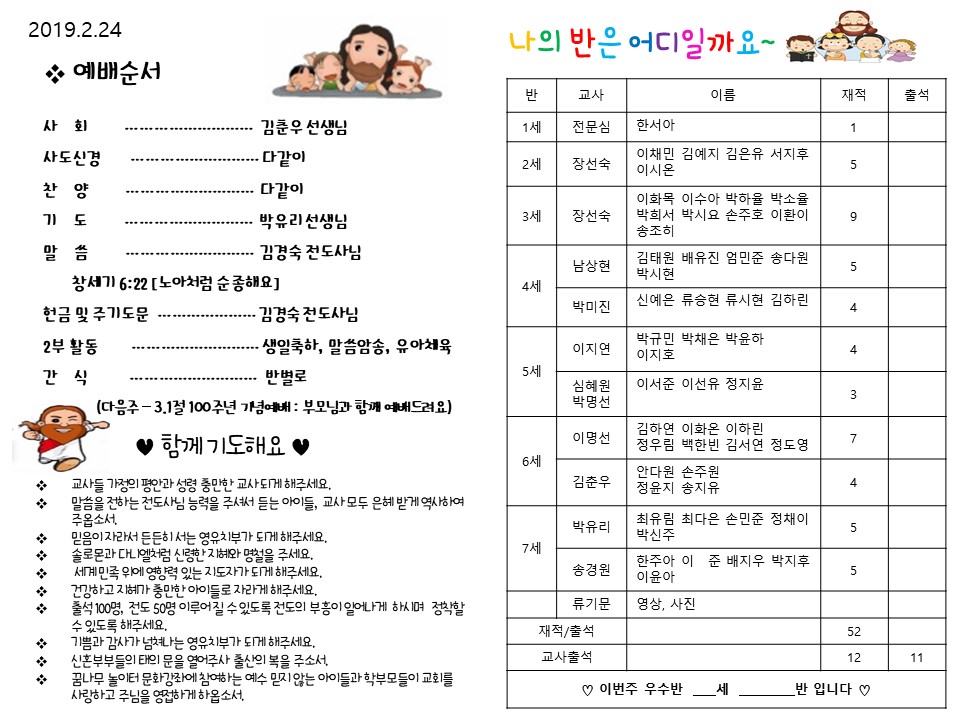 2019.2.24
❖ 예배순서
사 회 ---------------------------- 김춘우 선생님
사도신경 ---------------------------- 다같이
찬 양 ---------------------------- 다같이
기 도 ---------------------------- 박유리 선생님
말 씀 ---------------------------- 김경숙 전도사님
창세기 6:22 [노아처럼 순종해요]
헌금 및 주기도문 --------------------- 김경숙 전도사님
2부 활동 ---------------------------- 생일축하, 말씀암송, 유아체육
간 식 ---------------------------- 반별로
(다음주 – 3.1절 100주년 기념예배 : 부모님과 함께 예배드려요)
♥ 함께 기도해요 ♥
❖ 교사들 가정의 평안과 성령 충만한 교사 되게 해주세요.
❖ 말씀을 전하는 전도사님 능력을 주셔서 듣는 아이들, 교사 모두 은혜 받게 역사하여
주옵소서.
❖ 믿음이 자라서 든든히 서는 영유치부가 되게 해주세요.
❖ 솔로몬과 다니엘처럼 신령한 지혜와 명철을 주세요.
❖ 세계 민족 위에 영향력 있는 지도자가 되게 해주세요.
❖ 건강하고 지혜가 충만한 아이들로 자라게 해주세요.
❖ 출석 100명, 전도 50명 이루어 질 수 있도록 전도의 부흥이 일어나게 하시며 정착할
수 있도록 해주세요.
❖ 기쁨과 감사가 넘쳐나는 영유치부가 되게 해주세요.
❖ 신혼부부들의 태의 문을 열어주사 출산의 복을 주소서.
❖ 꿈나무 놀이터 문화강좌에 참여하는 예수 믿지 않는 아이들과 학부모들이 교회를
사랑하고 주님을 영접하게 하옵소서.
나의 반은 어디일까요~
반 교사 이름 재적 출석
1세 전문심 한서아 1
2세 장선숙 이채민 김예지 김은유 서지후
이시온 5
3세 장선숙 이화목 이수아 박하율 박소율
박희서 박시요 손주호 이환이
송조히 9
4세 남상현 김태원 배유진 엄민준 송다원
박시현 5
박미진 신예은 류승현 류시현 김하린 4
5세 이지연 박규민 박채은 박윤하
이지호 4
심혜원
박명선 이서준 이선유 정지윤 3
6세 이명선 김하연 이화온 이하린
정우림 백한빈 김서연 정도영 7
김춘우 안다원 손주원
정윤지 송지유 4
7세 박유리 최유림 최다은 손민준 정채이
박신주 5
송경원 한주아 이 준 배지우 박지후
이윤아 5
류기문 영상, 사진
재적/출석 52
교사출석 12 11
♡ 이번주 우수반 ___세 ________반 입니다 ♡